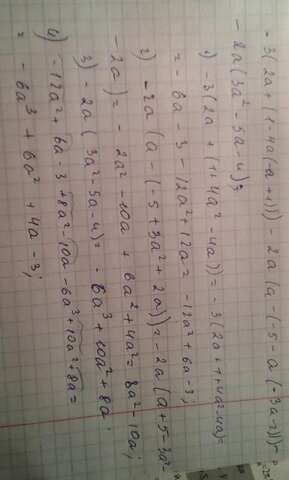 - 3(2a + (1-4a(-a+1))) - 2a (a - (-5-a(-3a-2))) -
- 2a(3a² - 5a - 4);
1) -3(2a + (1+4a² - 4a)) = - 3(2a+1+4a²-4a) =
= - 6a - 3 - 12a² + 12a = -12a² + 6a - 3;
2) -2a (a - (-5 + 3a² + 2a)) = - 2a (a + 5 - 3a² -
- 2a) = - 2a² - 10a + 6a² + 4a² = 8a² - 10a;
3) - 2a (3a² - 5a - 4) = - 6a³ + 10a² + 8a;
4) -12a² + 6a - 3 + 8a² - 10a - 6a³ + 10a² + 8a =
= - 6a³ + 6a² + 4a - 3;